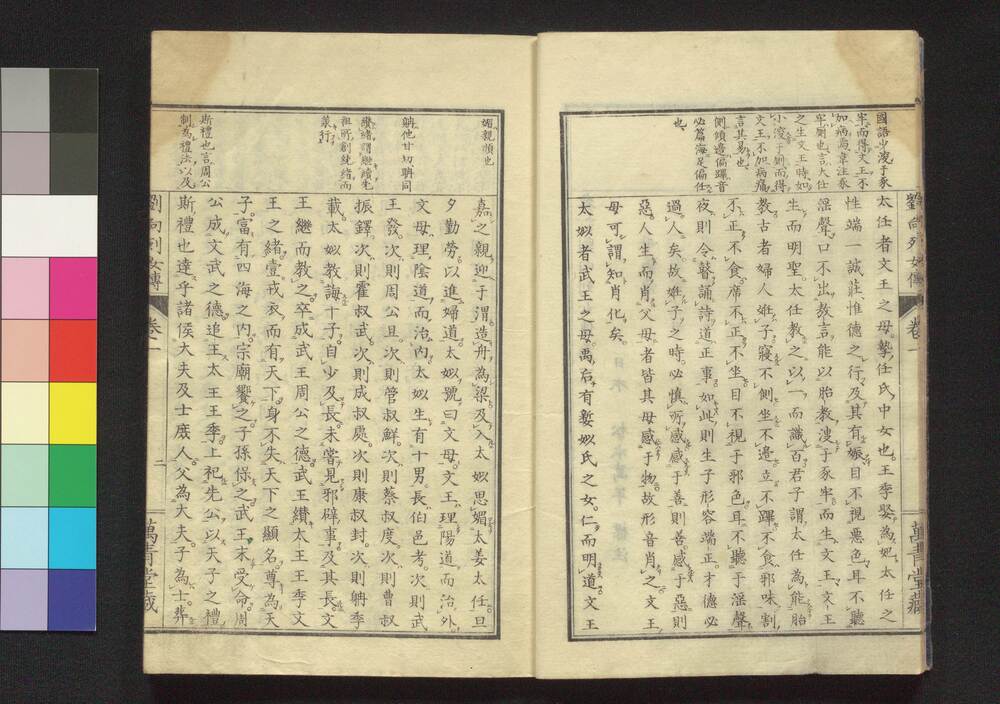 國語少溲于豕
牢而得文王不
加病焉韋注豕
牢厠也言大任
之生文王時如
小溲于厠而得
文王不加病痛
言其易也
側傾邊偏蹕音
必篇海足偏任
也
劉向列女傳
卷一
萬青堂藏
太任者文王之母摯任氏中女也王季娶為妃太任之
性端一誠莊惟德之行及其有娠目不視惡色耳不聽
淫聲口不出敖言能以胎教溲于豕牢而生文王文王
生而明聖太任教之以一而識百君子謂太任為能胎
教古者婦人妊子寢不側坐不邊立不蹕不食邪味割
不正不食席不正不坐目不視于邪色耳不聽于淫聲
夜則令瞽誦詩道正事如此則生子形容端正才德必
過人矣故妊子之時必慎所感感于善則善感于惡則
惡人生而肖父母者皆其母感于物故形音肖之文王
母可謂知肖化矣
太姒者武王之母禹后有㜪姒氏之女仁而明道文王
媚親順也
聃他甘切聃同
纘緒謂繼續先
祖所創統緒而
業行
斯禮也言周公
制為禮法以及
嘉之親迎于渭造舟為梁及入太姒思媚太姜太任旦
夕勤勞以進婦道太姒號曰文母文王理陽道而治外
文母理陰道而治內太姒生有十男長伯邑考次則武
王發次則周公旦次則管叔鮮次則蔡叔度次則曹叔
振鐸次則霍叔武次則成叔處次則康叔封次則聃季
載太姒教誨十子自少及長未嘗見邪辟事及其長文
王繼而教之卒成武王周公之德武王纘太王王季文
王之緒壹戎衣而有天下身不失天下之顯名尊為天
子富有四海之內宗廟饗之子孫保之武王末受命周
公成文武之德追王太王王季上祀先公以天子之禮
斯禮也達乎諸侯大夫及士庶人父為大夫子為士葬
劉向列女傳
卷一
二
萬青堂藏